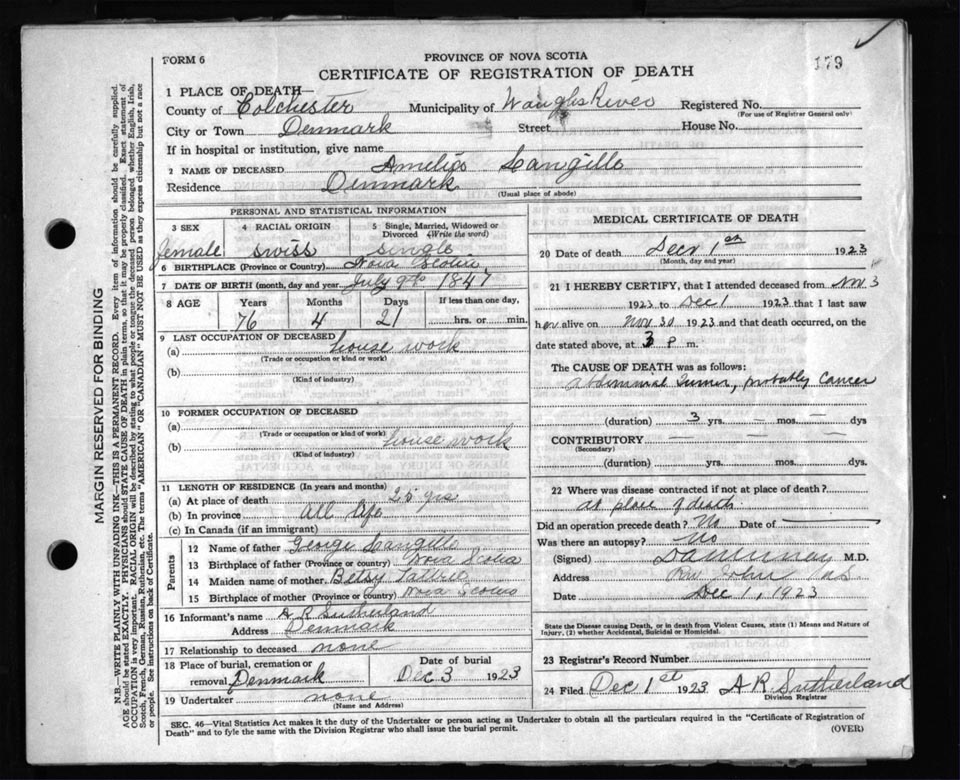 179
FORM 6
PROVINCE OF NOVA SCOTIA
CERTIFICATE OF REGISTRATION OF DEATH
1 PLACE OF DEATH—
County of Colchester Municipality of Waughs River Registered No.
(For use of Registrar General only)
City or Town Denmark Street House No.
If in hospital or institution, give name
2 NAME OF DECEASED Amelia Langille
Residence Denmark
(Usual place of abode)
PERSONAL AND STATISTICAL INFORMATION
3 SEX 4 RACIAL ORIGIN 5 Single, Married, Widowed or Divorced (Write the word)
female swiss single
6 BIRTHPLACE (Province or Country) Nova Scotia
7 DATE OF BIRTH (month, day and year) July 9th 1847
8 AGE Years Months Days If less than one day,
76 4 21 hrs. or min.
9 LAST OCCUPATION OF DECEASED
(a) house work
(Trade or occupation or kind or work)
(b)
(Kind of industry)
10 FORMER OCCUPATION OF DECEASED
(a)
(Trade or occupation or kind of work)
(b) house work
(Kind of industry)
11 LENGTH OF RESIDENCE (In years and months)
(a) At place of death 25 yrs
(b) In province all life
(c) In Canada (if an immigrant)
Parents
12 Name of father George Langille
13 Birthplace of father (Province or country) Nova Scotia
14 Maiden name of mother Betsy
15 Birthplace of mother (Province or country) Nova Scotia
16 Informant's name A R Sutherland
Address Denmark
17 Relationship to deceased none
18 Place of burial, cremation or removal Denmark Date of burial Dec 3 1923
19 Undertaker none
(Name and Address)
MEDICAL CERTIFICATE OF DEATH
20 Date of death Decr 1st 1923
(Month, day and year)
21 I HEREBY CERTIFY, that I attended deceased from Nov. 3
1923 to Dec 1 1923 that I last saw
her alive on Nov 30 1923 and that death occurred, on the
date stated above, at 3 P m.
The CAUSE OF DEATH was as follows:
Abdominal Tumor, probably Cancer
(duration) 3 yrs. — mos. — dys
CONTRIBUTORY — — —
(Secondary)
(duration) yrs. mos. dys.
22 Where was disease contracted if not at place of death?
at place of death
Did an operation precede death? No Date of
Was there an autopsy? No
(Signed) M.D.
Address John NS
Date Dec 1, 1923
State the Disease causing Death, or in death from Violent Causes, state (1) Means and Nature of
Injury, (2) whether Accidental, Suicidal or Homicidal.
23 Registrar's Record Number
24 Filed Dec 1st 1923 A R Sutherland
Division Registrar
SEC. 46—Vital Statistics Act makes it the duty of the Undertaker or person acting as Undertaker to obtain all the particulars required in the "Certificate of Registration of
Death" and to fyle the same with the Division Registrar who shall issue the burial permit.
(OVER)
MARGIN RESERVED FOR BINDING
N.B.—WRITE PLAINLY, WITH UNFADING INK—THIS IS A PERMANENT RECORD. Every item of information should be carefully supplied.
AGE should be stated EXACTLY. PHYSICIANS should STATE CAUSE OF DEATH in plain terms, so that it may be properly classified. Exact statement of
OCCUPATION is very important. RACIAL ORIGIN will be described by stating to what people or tongue the deceased person belonged whether English, Irish,
Scotch, French, German, Russian, Ruthenian, etc. The terms "AMERICAN" or "CANADIAN" MUST NOT BE USED as they express citizenship but not a race
or people. See instructions on back of Certificate.